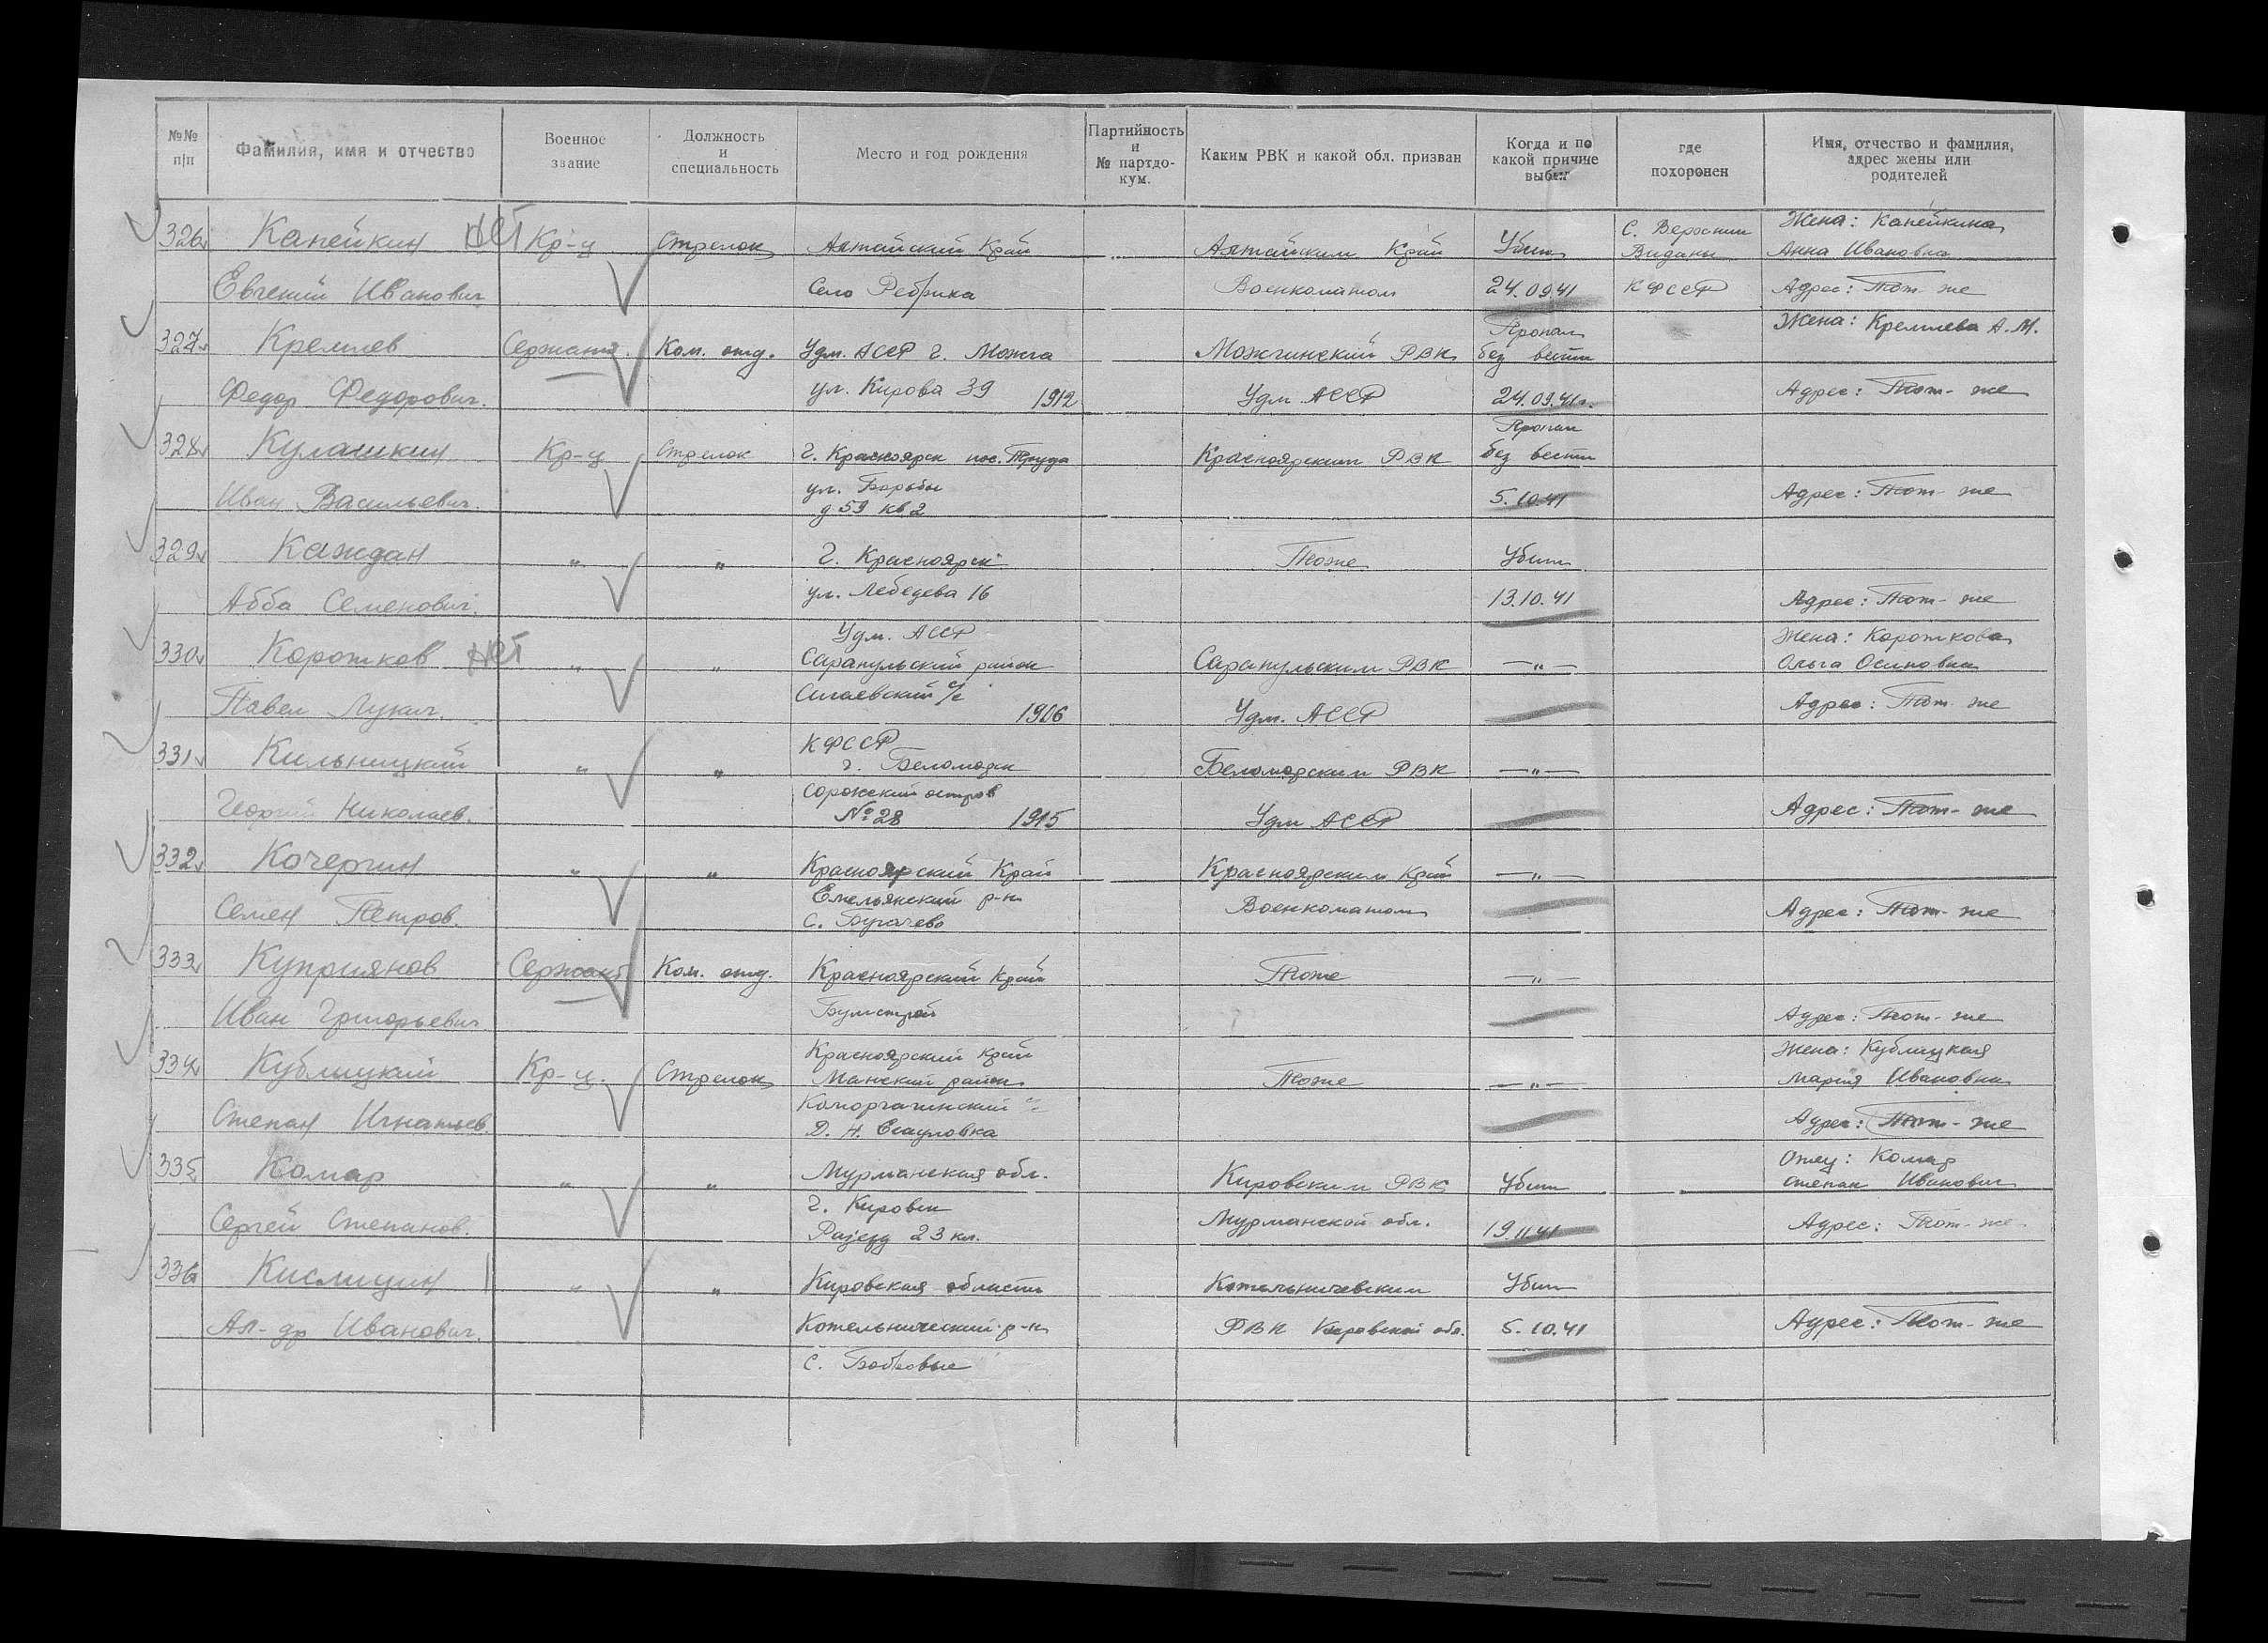 №№ п/п
Фамилия, имя и отчество
Военное звание
Должность и специальность
Место и год рождения
Партийность и № партдокум.
Каким РВК и какой обл. призван
Когда и по какой причине выбыл
где похоронен
Имя, отчество и фамилия, адрес жены или родителей
326 Капейкин нет Кр-ц Стрелок Алтайский Край Алтайским Край Убит С. Верхнии Виданы Жена: Капейкина Анна Ивановна
Евгений Иванович Село Ребриха Военкоматом 24.09.41 КФССР Адрес: Тот-же
327 Кремлев Сержант Ком. отд. Удм. АССР г. Можга Можгинский РВК Пропал без вести Жена: Кремлева А.М.
Федор Федорович. ул. Кирова 39 1912 Удм АССР 24.09.41г. Адрес: Тот-же
328 Кулашкин Кр-ц Стрелок г. Красноярск пос. Труда Красноярским РВК Пропал без вести
Иван Васильевич. ул. Борьбы д 59 кв 2 5.10.41 Адрес: Тот-же
329 Каждан " " г. Красноярск Тоже Убит
Абба Семенович. ул. Лебедева 16 13.10.41 Адрес: Тот-же
330 Коротков нет " " Удм. АССР Сарапульский район Сарапульским РВК —"— Жена: Короткова Ольга Осиповна
Павел Лукич. Сигаевский с/с 1906 Удм. АССР Адрес: Тот же
331 Кильницкий " " КФССР г. Беломорск Беломорским РВК —"—
Георгий Николаев. Сорокский остров № 28 1915 Удм АССР Адрес: Тот-же
332 Кочергин " " Красноярский Край Красноярским Край —"—
Семен Петров. Емельянский р-н С. Бугачево Военкоматом Адрес: Тот-же
333 Куприянов Сержант Ком. отд. Красноярский Край Тоже —"—
Иван Григорьевич Бумстрой Адрес: Тот-же
334 Кублицкий Кр-ц. Стрелок Красноярский край Манский район Тоже —"— Жена: Кублицкая Мария Ивановна
Степан Игнатьев. Д. Н. Есауловка Адрес: Тот-же
335 Комар " " Мурманская обл. Кировским РВК Убит Отец: Комар Степан Иванович
Сергей Степанов. г. Кировск Разъезд 23 км. Мурманской обл. 19.11.41 Адрес: Тот-же
336 Кислицин " " Кировская область Котельничевским Убит
Ал-др Иванович. Котельнический р-н РВК Кировской обл. 5.10.41 Адрес: Тот-же
С. Бобровые